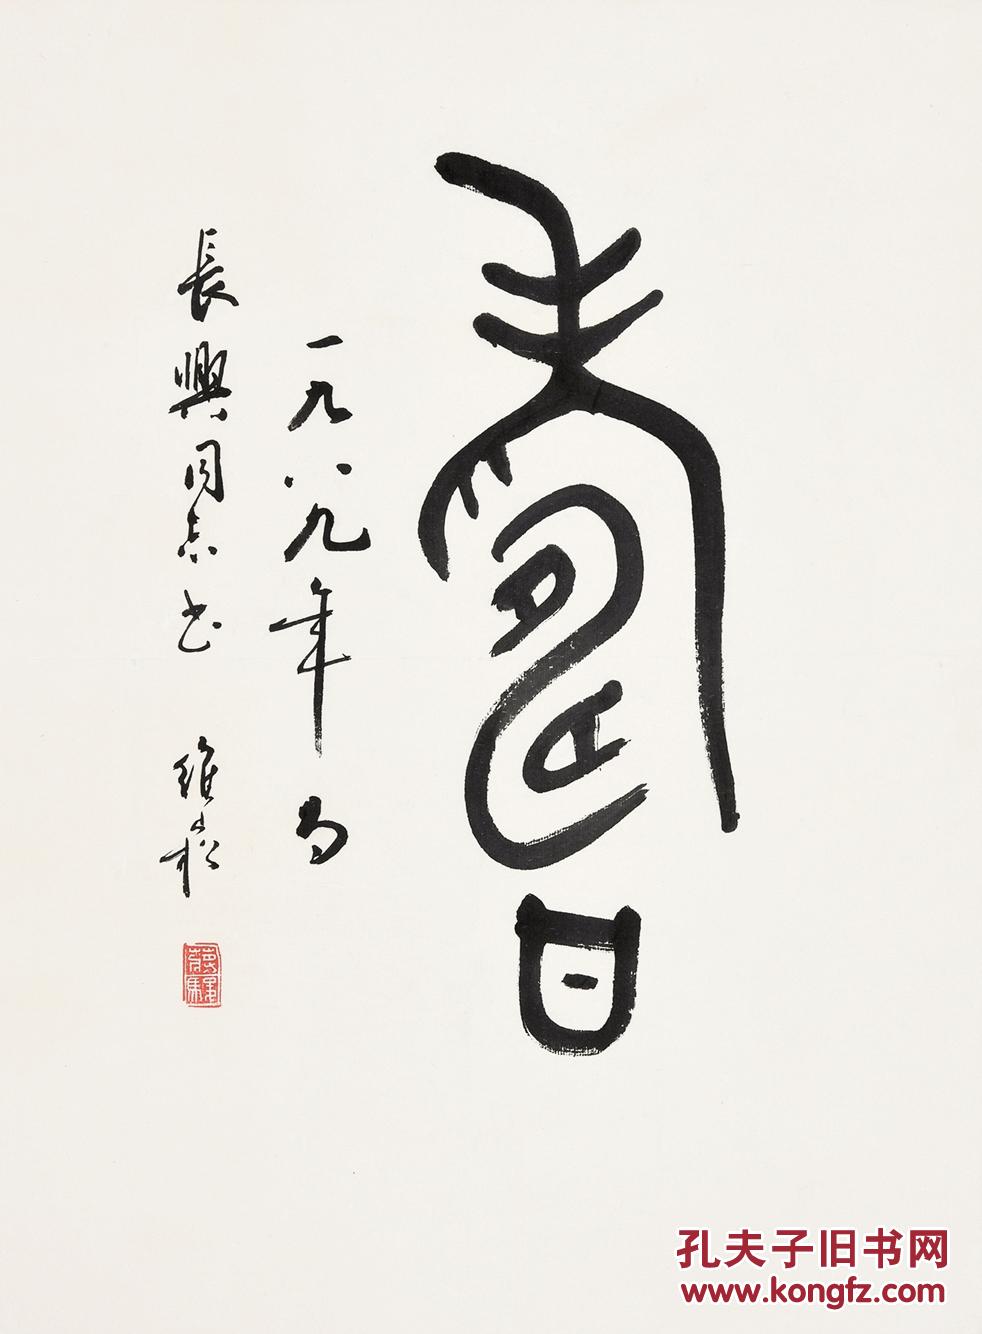 壽
一九八九年为
長興同志书 維崧
孔夫子旧书网
www.kongfz.com